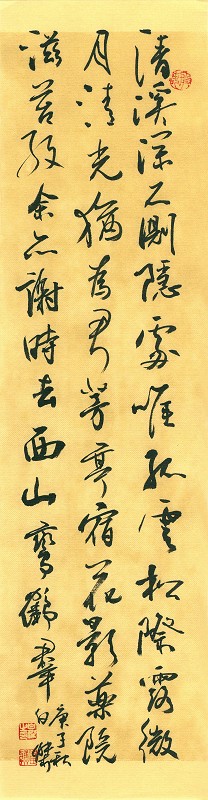 清溪深不測隱處唯孤雲松際露微
月清光猶為君茅亭宿花影藥院
滋苔紋余亦謝時去西山鸞鶴羣
庚子秋
白